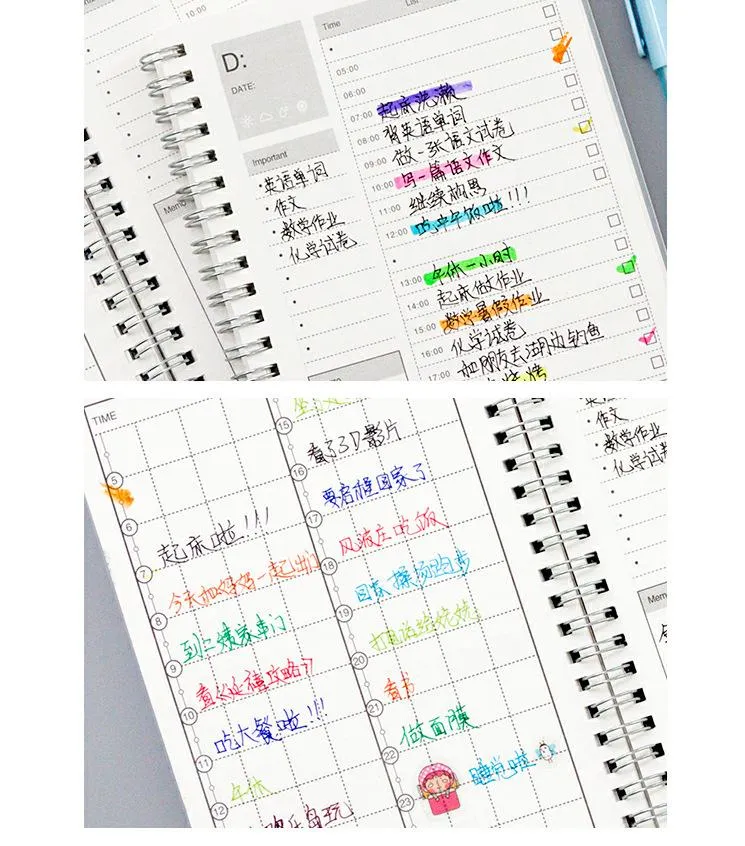 10:00
D:
DATE:
Time
Important
·英语单词
·作文
·数学作业
·化学试卷
Memo
05:00
06:00
07:00 起床洗漱
08:00 背英语单词
09:00 做一张语文试卷
10:00 写一篇语文作文
11:00 继续构思
12:00 吃中午饭啦!!!
13:00 午休一小时
14:00 起床做作业
15:00 数学暑假作业
16:00 化学试卷
17:00 和朋友去湖边钓鱼
烧烤
TIME
5
6
起床啦!!!
7
今天和妈妈一起出门
8
到三姨家串门
9
看《延禧攻略》
10
吃大餐啦!!!
11
午休
12
欢乐岛玩
15
看了3D影片
16
要启程回家了
17
风波庄吃饭
18
回家操场跑步
19
20
看书
21
做面膜
22
睡觉啦
23
作文
·数学作业
·化学试卷
Memo